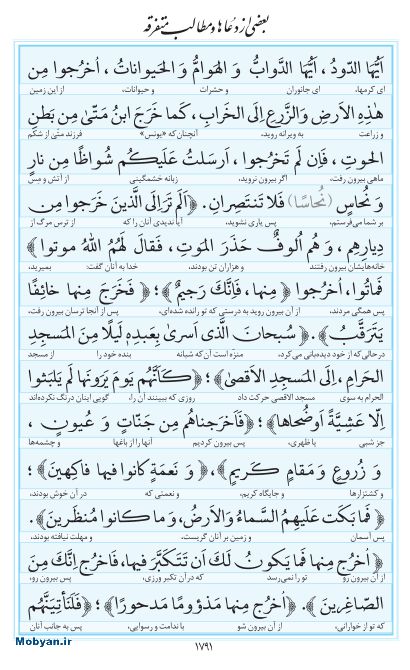 بعضی از دعاها و مطالب متفرقه
اَیُّهَا الدّودُ ، اَیُّهَا الدَّوابُّ وَ الهَوامُّ وَ الحَیواناتُ ، اُخرُجوا مِن
ای کرمها، ای جانوران و حشرات و حیوانات، از این زمین
هٰذِهِ الاَرضِ وَ الزَّرعِ اِلَی الخَرابِ ، کَما خَرَجَ ابنُ مَتّیٰ مِن بَطنِ
و زراعت به ویرانه روید، آنچنان که «یونس» فرزند متّی از شکم
الحوتِ ، فَاِن لَم تَخرُجوا ، اَرسَلتُ عَلَیکُم شُواظًا مِن نارٍ
ماهی بیرون رفت، اگر بیرون نروید، زبانه خشمگینی از آتش و مِس
وَ نُحاسٍ (نُحاسًا) فَلا تَنتَصِرانِ . ﴿ اَلَم تَرَ اِلَی الَّذینَ خَرَجوا مِن
بر شما می‌فرستم، پس یاری نشوید، آیا ندیدی آنان را که از ترس مرگ از
دِیارِهِم ، وَ هُم اُلوفٌ حَذَرَ المَوتِ ، فَقالَ لَهُمُ اللهُ موتوا ﴾
خانه‌هایشان بیرون رفتند و هزاران تن بودند، خدا به آنان گفت: بمیرید،
فَماتُوا، اُخرُجوا ﴿ مِنها، فَاِنَّکَ رَجیمٌ ﴾؛ ﴿ فَخَرَجَ مِنها خائِفًا
پس همگی مردند، از آن بیرون روید به درستی که تو رانده شده‌ای، پس از آنجا ترسان بیرون رفت،
یَتَرَقَّبُ ﴾. ﴿ سُبحانَ الَّذی اَسریٰ بِعَبدِهِ لَیلًا مِنَ المَسجِدِ
درحالی‌که از خود دیده‌بانی می‌کرد، منزه است آن که شبانه بنده خود را از مسجد
الحَرامِ ، اِلَی المَسجِدِ الاَقصیٰ ﴾؛ ﴿ کَاَنَّهُم یَومَ یَرَونَها لَم یَلبَثوا
الحرام به سوی مسجد الاقصی حرکت داد روزی که ببینند آن را، گویی اینان درنگ نکرده‌اند
اِلّا عَشیَّةً اَو ضُحاها ﴾؛ ﴿ فَاَخرَجناهُم مِن جَنّاتٍ وَ عُیونٍ ،
جز شبی یا ظهری، پس بیرون کردیم آنها را از باغها و چشمه‌ها
وَ زُروعٍ وَ مَقامٍ کَریمٍ ﴾، ﴿ وَ نَعمَةٍ کانوا فیها فاکِهینَ ﴾؛
و کشتزارها و جایگاه کریم، و نعمتی که در آن خوش بودند،
﴿ فَما بَکَت عَلَیهِمُ السَّماءُ وَ الاَرضُ، وَ ما کانوا مُنظَرینَ ﴾.
پس آسمان و زمین بر آنان گریست، و مهلت نیافته بودند،
﴿ اُخرُج مِنها فَما یَکونُ لَکَ اَن تَتَکَبَّرَ فیها، فَاخرُج اِنَّکَ مِنَ
از آن بیرون رو تو را نمی‌رسد که در آن تکبر ورزی، پس بیرون رو،
الصّاغِرینَ ﴾. ﴿ اُخرُج مِنها مَذؤومًا مَدحورًا ﴾؛ ﴿ فَلَنَأتِیَنَّهُم
که تو از خوارانی، از آن بیرون شو با ندامت و رسوایی، پس به جانب آنان
۱۷۹۱
Mobyan.ir